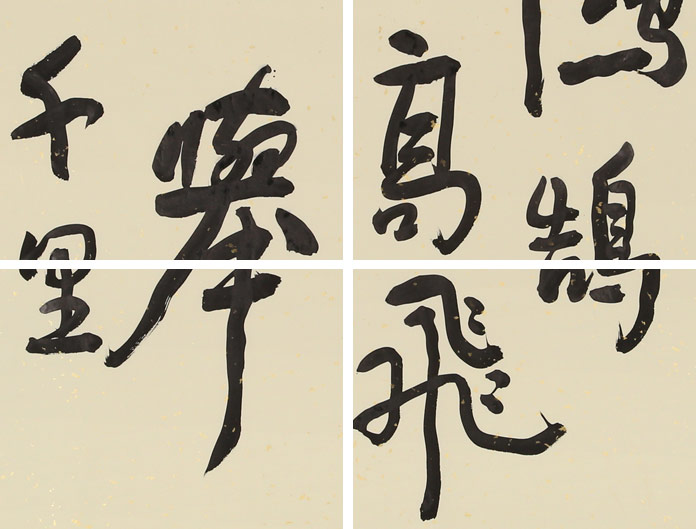 鵠
高飛
舉
千里